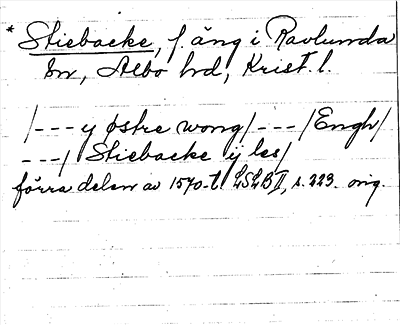 * Stiebacke, f. äng i Ravlunda
sn, Albo hd, Krist. l.
/--- y østre wong/ --- /Engh/
---/ Stiebacke ij les/
förra delen av 1570-t. LSLB II, s. 223. orig.